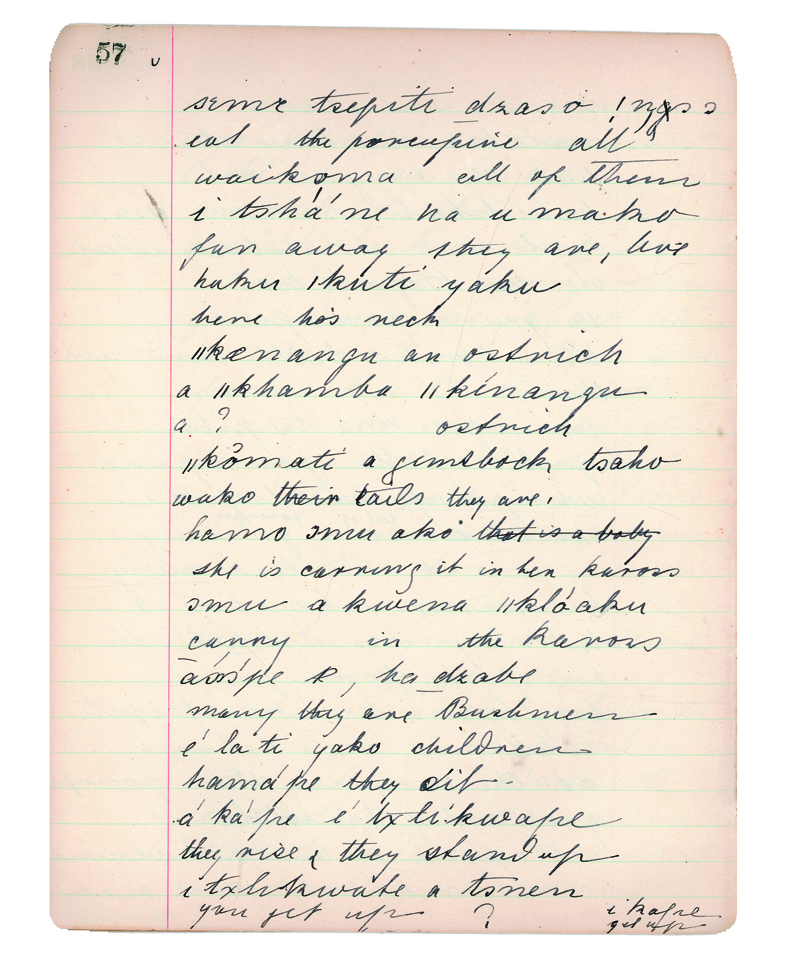 57
seme tsepiti dzaso
eat the porcupine all
waikoma all of them
i tshá'ne ha u mako
far away they are, live
haku ǀkuti yaku
here his neck
ǁkenangu an ostrich
a ǁkhamba ǁkínangu
a ? ostrich
ǁkŏmati a gemsbock tsaho
wako their tails they are.
hamo ɔmu ako that is a baby
she is carrying it in her kaross
ɔmu a kwena ǁklóaku
carry in the kaross
ha dzabe
many they are Bushmen
é la ti yako children
hamá'pe they sit
á ká'pe é txlikwape
they rise & they stand up
i txlikwate a tsnen
you get up ?
i kape
get up